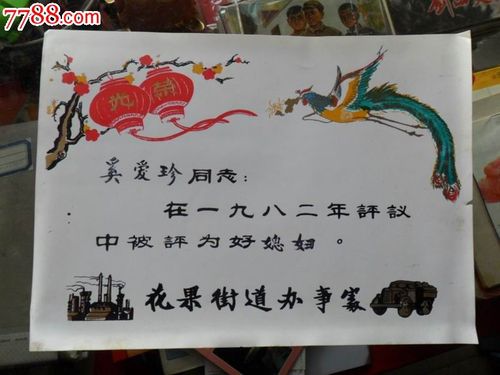 7788.com
奚爱珍同志：
在一九八二年評议
中被評为好媳妇。
花果街道办事家